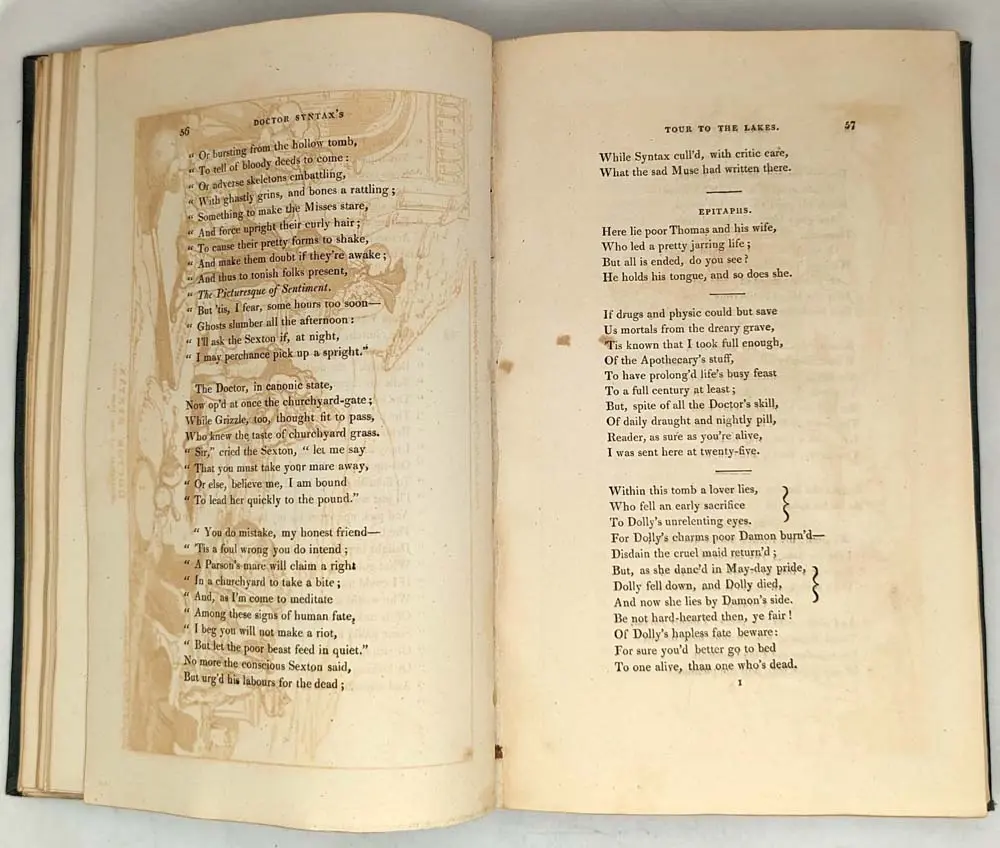 56
DOCTOR SYNTAX'S
“ Or bursting from the hollow tomb,
“ To tell of bloody deeds to come :
“ Or adverse skeletons embattling,
“ With ghastly grins, and bones a rattling ;
“ Something to make the Misses stare,
“ And force upright their curly hair ;
“ To cause their pretty forms to shake,
“ And make them doubt if they're awake ;
“ And thus to tonish folks present,
“ The Picturesque of Sentiment.
“ But 'tis, I fear, some hours too soon—
“ Ghosts slumber all the afternoon :
“ I'll ask the Sexton if, at night,
“ I may perchance pick up a spright.”
The Doctor, in canonic state,
Now op'd at once the churchyard-gate ;
While Grizzle, too, thought fit to pass,
Who knew the taste of churchyard grass.
“ Sir,” cried the Sexton, “ let me say
“ That you must take your mare away,
“ Or else, believe me, I am bound
“ To lead her quickly to the pound.”
“ You do mistake, my honest friend—
“ 'Tis a foul wrong you do intend ;
“ A Parson's mare will claim a right
“ In a churchyard to take a bite ;
“ And, as I'm come to meditate
“ Among these signs of human fate,
“ I beg you will not make a riot,
“ But let the poor beast feed in quiet.”
No more the conscious Sexton said,
But urg'd his labours for the dead ;
TOUR TO THE LAKES.
57
While Syntax cull'd, with critic care,
What the sad Muse had written there.
EPITAPHS.
Here lie poor Thomas and his wife,
Who led a pretty jarring life ;
But all is ended, do you see ?
He holds his tongue, and so does she.
If drugs and physic could but save
Us mortals from the dreary grave,
'Tis known that I took full enough,
Of the Apothecary's stuff,
To have prolong'd life's busy feast
To a full century at least ;
But, spite of all the Doctor's skill,
Of daily draught and nightly pill,
Reader, as sure as you're alive,
I was sent here at twenty-five.
Within this tomb a lover lies,
Who fell an early sacrifice
To Dolly's unrelenting eyes.
For Dolly's charms poor Damon burn'd—
Disdain the cruel maid return'd ;
But, as she danc'd in May-day pride,
Dolly fell down, and Dolly died,
And now she lies by Damon's side.
Be not hard-hearted then, ye fair !
Of Dolly's hapless fate beware:
For sure you'd better go to bed
To one alive, than one who's dead.
I